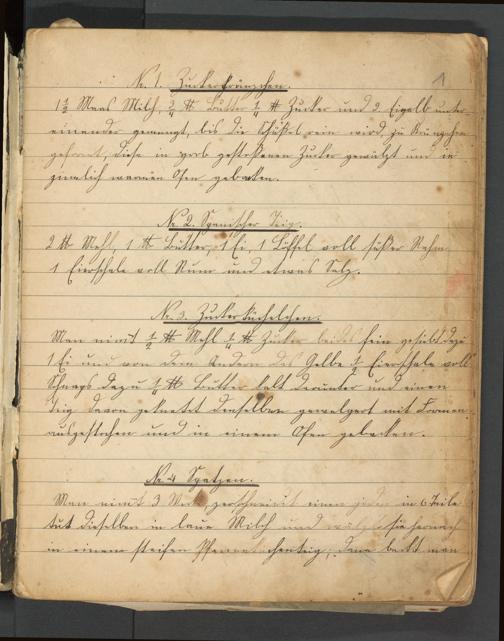 1
No. 1. Zuckerkränzchen.
1 1/2 Maas Milch, 3/4 ℔ Butter 1/4 ℔ Zucker und 2. Eigelb unter
einander gemengt, bis die Schüssel rein wird, zu Kränzchen
geformt, diese in grob gestoßenen Zucker gewälzt und in
ziemlich warmen Ofen gebacken.
No 2. Spanischer Teig.
2 ℔ Mehl, 1 ℔ Butter, 1 Ei, 1 Löffel voll süßer Rahm
1 Eierschale voll Rum und etwas Salz.
No. 3. Zuckerküchelchen.
Man nimt 1/2 ℔ Mehl 1/4 ℔ Zucker beides fein gesiebt dazu
1 Ei und von dem Andern das Gelbe 1/2 Eierschale voll
Schnaps dazu 1/4 ℔ Butter kalt darunter und einen
Teig davon geknetet denselben gewelgert mit Formen
ausgestochen und in einem Ofen gebacken.
No 4 Spatzen.
Man nimt 3 zerschneidet einen jeden in 6 Teile
tut dieselben in laue Milch und sie hernach
in einem steifen dann backt man